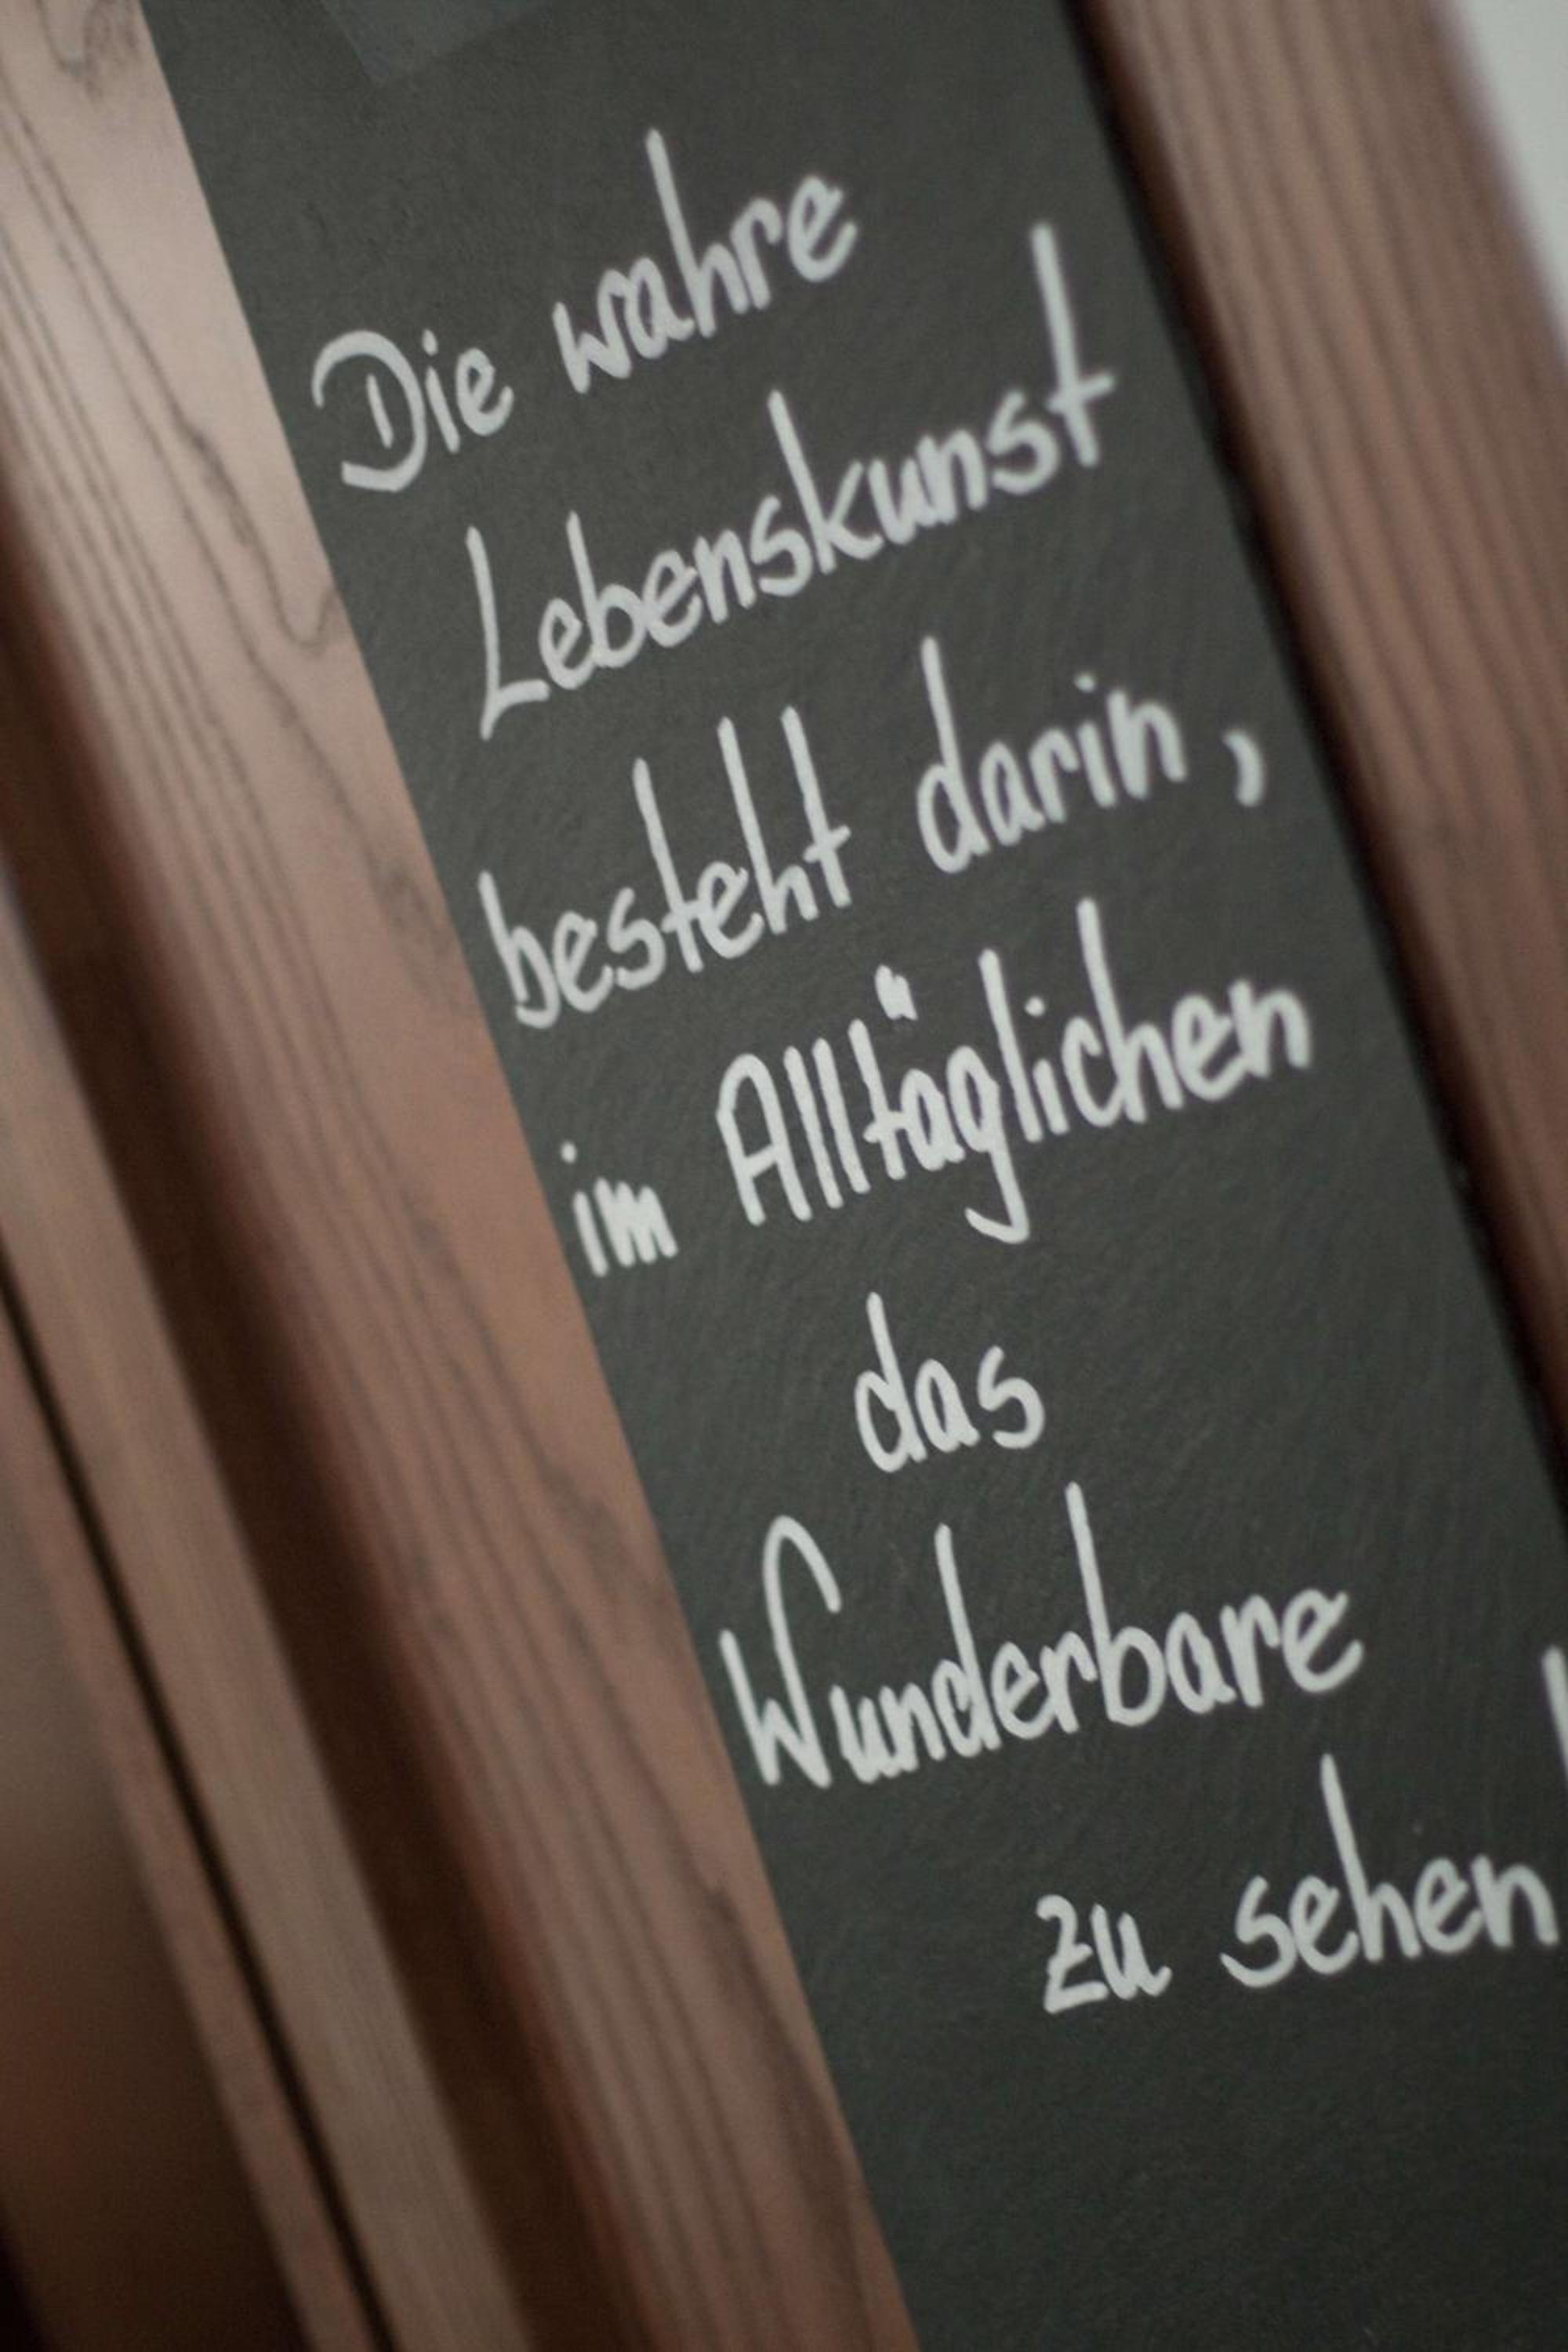 Die wahre
Lebenskunst
besteht darin,
im Alltäglichen
das
Wunderbare
zu sehen!